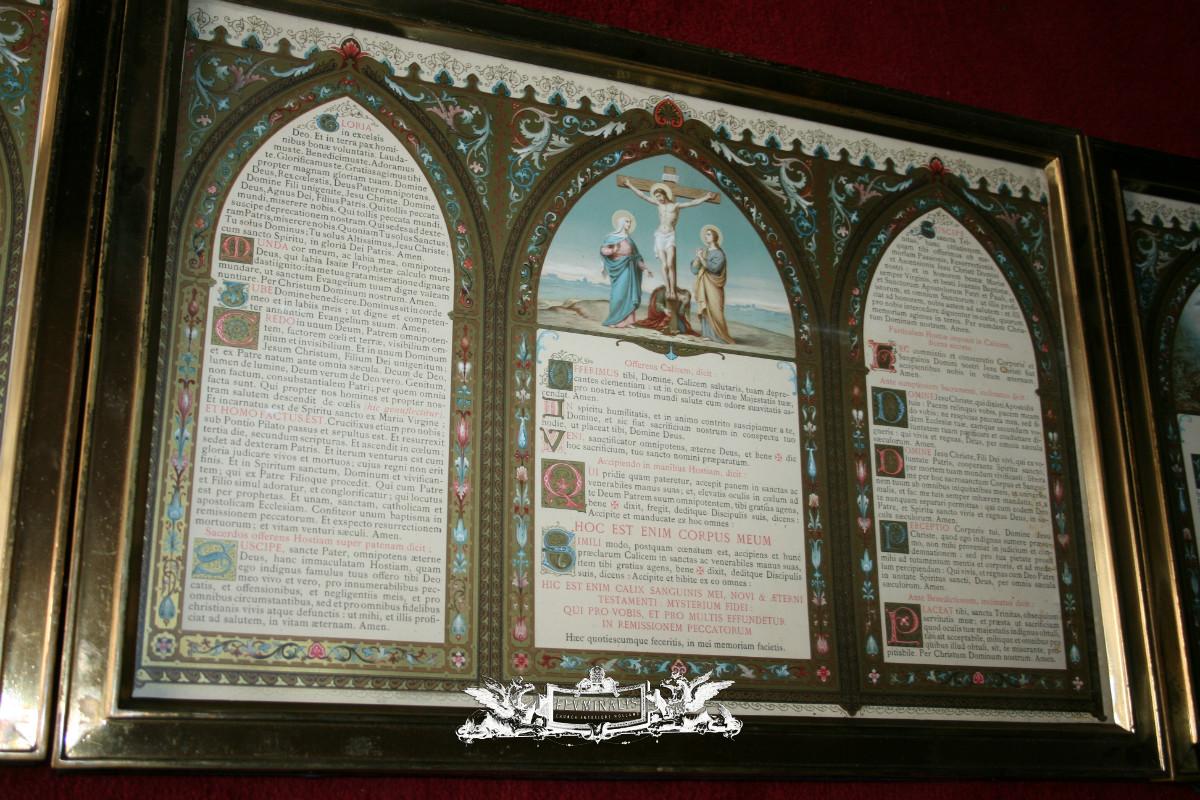 GLORIA
in excelsis
Deo. Et in terra pax homi-
nibus bonæ voluntatis. Lauda-
muste. Benedicimuste. Adoramus
te. Glorificamus te. Gratias agimus tibi
propter magnam gloriam tuam. Domine
Deus, Rex cœlestis, Deus Pater omnipotens.
Domine Fili unigenite, Jesu Christe. Domine
Deus, Agnus Dei, Filius Patris. Qui tollis peccata
mundi, miserere nobis. Qui tollis peccata mundi,
suscipe deprecationem nostram. Qui sedes ad dexte-
ram Patris, miserere nobis. Quoniam Tu solus Sanctus;
Tu solus Dominus; Tu solus Altissimus, Jesu Christe:
cum sancto Spiritu, in gloriâ Dei Patris. Amen.
MUNDA cor meum, ac labia mea, omnipotens
Deus, qui labia Isaiæ Prophetæ calculo mun-
dasti ignito: ita me tua grata miseratione dignare
mundare, ut sanctum Evangelium tuum digne valeam
nuntiare. Per Christum Dominum nostrum. Amen.
JUBE Domine benedicere. Dominus sit in corde
meo et in labiis meis; ut digne et competen-
ter annuntiem Evangelium suum. Amen.
CREDO in unum Deum, Patrem omnipoten-
tem, factorem cœli et terræ, visibilium om-
nium et invisibilium. Et in unum Dominum
Jesum Christum, Filium Dei unigenitum;
et ex Patre natum ante omnia sæcula. Deum de Deo,
lumen de lumine, Deum verum de Deo vero. Genitum,
non factum, consubstantialem Patri; per quem omnia
facta sunt. Qui propter nos homines et propter nos-
tram salutem descendit de cœlis hic genuflectitur.
Et incarnatus est de Spiritu sancto ex Maria Virgine;
ET HOMO FACTUS EST. Crucifixus etiam pro nobis;
sub Pontio Pilato passus et sepultus est. Et resurrexit
tertia die, secundum scripturas. Et ascendit in cœlum;
sedet ad dexteram Patris. Et iterum venturus est cum
gloria judicare vivos et mortuos; cujus regni non erit
finis. Et in Spiritum sanctum, Dominum et vivifican-
tem; qui ex Patre Filioque procedit. Qui cum Patre
et Filio simul adoratur, et conglorificatur; qui locutus
est per prophetas. Et unam, sanctam, catholicam et
apostolicam Ecclesiam. Confiteor unum baptisma in
remissionem peccatorum. Et exspecto resurrectionem
mortuorum; et vitam venturi sæculi. Amen.
Sacerdos offerens Hostiam super patenam dicit:
SUSCIPE, sancte Pater, omnipotens æterne
Deus, hanc immaculatam Hostiam, quam
ego indignus famulus tuus offero tibi Deo
meo vivo et vero, pro innumerabilibus pec-
catis, et offensionibus, et negligentiis meis, et pro
omnibus circumstantibus, sed et pro omnibus fidelibus
christianis vivis atque defunctis: ut mihi, et illis profi-
ciat ad salutem, in vitam æternam. Amen.
Offerens Calicem, dicit:
OFFERIMUS tibi, Domine, Calicem salutaris, tuam depre-
cantes clementiam: ut in conspectu divinæ Majestatis tuæ,
pro nostra et totius mundi salute cum odore suavitatis as-
cendat. Amen.
IN spiritu humilitatis, et in animo contrito suscipiamur a te,
Domine, et sic fiat sacrificium nostrum in conspectu tuo
hodie, ut placeat tibi, Domine Deus.
VENI, sanctificator omnipotens, æterne Deus, et bene ✠ dic
hoc sacrificium, tuo sancto nomini præparatum.
Accipiendo in manibus Hostiam, dicit:
QUI pridie quam pateretur, accepit panem in sanctas ac
venerabiles manus suas; et, elevatis oculis in cœlum ad
te Deum Patrem suum omnipotentem, tibi gratias agens,
bene ✠ dixit, fregit, deditque Discipulis suis, dicens:
Accipite et manducate ex hoc omnes:
HOC EST ENIM CORPUS MEUM
SIMILI modo, postquam cœnatum est, accipiens et hunc
præclarum Calicem in sanctas ac venerabiles manus suas,
item tibi gratias agens, bene ✠ dixit, deditque Discipulis
suis, dicens: Accipite et bibite ex eo omnes:
HIC EST ENIM CALIX SANGUINIS MEI, NOVI & ÆTERNI
TESTAMENTI: MYSTERIUM FIDEI:
QUI PRO VOBIS, ET PRO MULTIS EFFUNDETUR
IN REMISSIONEM PECCATORUM
Hæc quotiescumque feceritis, in mei memoriam facietis.
SUSCIPE
sancta Tri-
nitas, hanc oblationem,
quam tibi offerimus ob me-
moriam Passionis, Resurrectionis,
et Ascensionis Jesu Christi Domini
nostri: et in honorem beatæ Mariæ
semper Virginis, et beati Joannis Baptistæ,
et Sanctorum Apostolorum Petri et Pauli, et
istorum, et omnium Sanctorum: ut illis profi-
ciat ad honorem, nobis autem ad salutem: et illi
pro nobis intercedere dignentur in cœlis, quorum
memoriam agimus in terris. Per eumdem Chris-
tum Dominum nostrum. Amen.
Particulam Hostiæ imponit in Calicem,
dicens secreto.
HÆC commixtio et consecratio Corporis et
Sanguinis Domini nostri Jesu Christi fiat
accipientibus nobis in vitam æternam.
Amen.
Ante sumptionem Sacramenti, inclinatus dicit:
DOMINE Jesu Christe, qui dixisti Apostolis
tuis: Pacem relinquo vobis, pacem meam
do vobis: ne respicias peccata mea, sed fi-
dem Ecclesiæ tuæ, eamque secundum vo-
luntatem tuam pacificare et coadunare di-
gneris: qui vivis et regnas, Deus, per omnia
sæculorum. Amen.
DOMINE Jesu Christe, Fili Dei vivi, qui ex vo-
luntate Patris, cooperante Spiritu sancto,
per mortem tuam mundum vivificasti: libera
me per hoc sacrosanctum Corpus et Sangui-
nem tuum ab omnibus iniquitatibus meis, et universis
malis, et fac me tuis semper inhærere mandatis, et a
te nunquam separari permittas: qui cum eodem Deo
Patre, et Spiritu sancto vivis et regnas Deus, in sæ-
cula sæculorum. Amen.
PERCEPTIO Corporis tui, Domine Jesu
Christe, quod ego indignus sumere præsu-
mo, non mihi proveniat in judicium et con-
demnationem: sed pro tua pietate prosit
mihi ad tutamentum mentis et corporis, et ad mede-
lam percipiendam: Qui vivis, et regnas cum Deo Patre
in unitate Spiritus sancti, Deus, per omnia sæcula
sæculorum, Amen.
Ante Benedictionem, inclinatus dicit:
PLACEAT tibi, sancta Trinitas, obsequium
servitutis meæ: et præsta, ut sacrificium
quod oculis tuæ majestatis indignus obtuli,
tibi sit acceptabile, mihique et omnibus pro
quibus illud obtuli, sit, te miserante, pro-
pitiabile. Per Christum Dominum nostrum. Amen.
FLUMINALIS
CHURCH INTERIORS HOLLAND